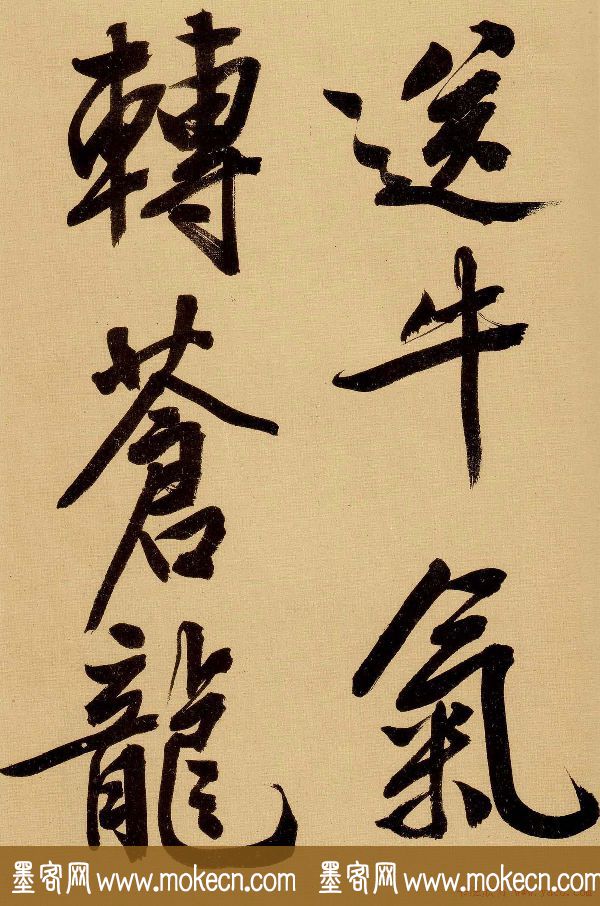 送牛氣
轉蒼龍
墨客网 www.mokecn.com 墨客网 www.mokecn.com